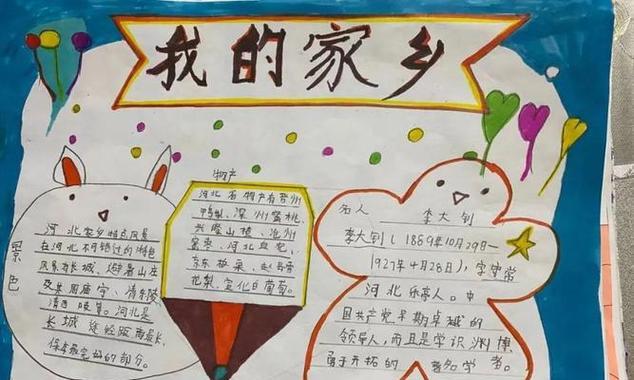 我的家乡
景色
河北家乡特点风景
在河北不错过的特色
风景有长城、避暑山庄
及其周庙宇、清东陵
清西陵等。河北是
长城途经距离最长,
保存最完好的部分。
物产
河北省物产有晋州
鸭梨、深州蜜桃、
兴隆山楂、沧州
金枣、河北血杞、
京东板栗、赵县雪
花梨、宣化白葡萄。
名人 李大钊
李大钊(1889年10月29日—
1927年4月28日),字守常
河北乐亭人。中
国共产党早期卓越的
领导人,而且是学识渊博、
勇于开拓的著名学者。